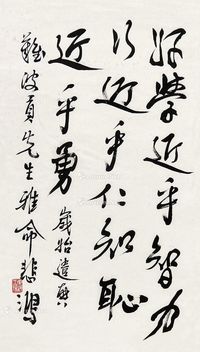 好學近乎智力
行近乎仁知恥
近乎勇
歲始遣興
難波貢先生雅命悲鴻